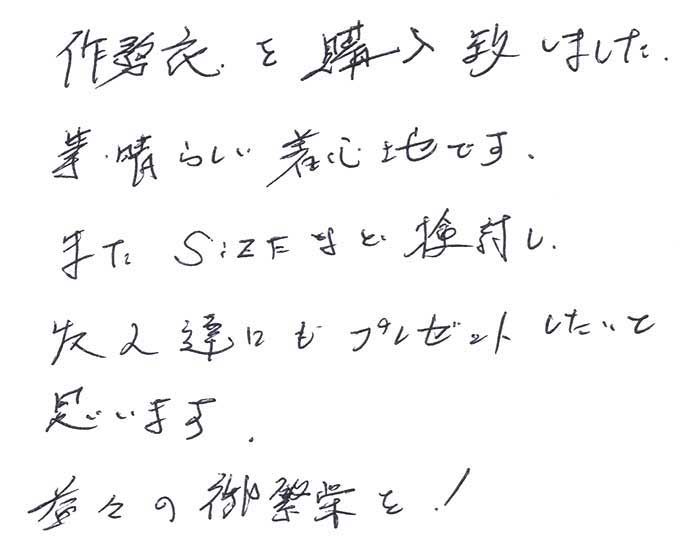 作務衣を購入致しました.
素晴らしい着心地です.
また SiZE など 検討し.
友人達にもプレゼントしたいと
思います.
益々の御繁栄を!